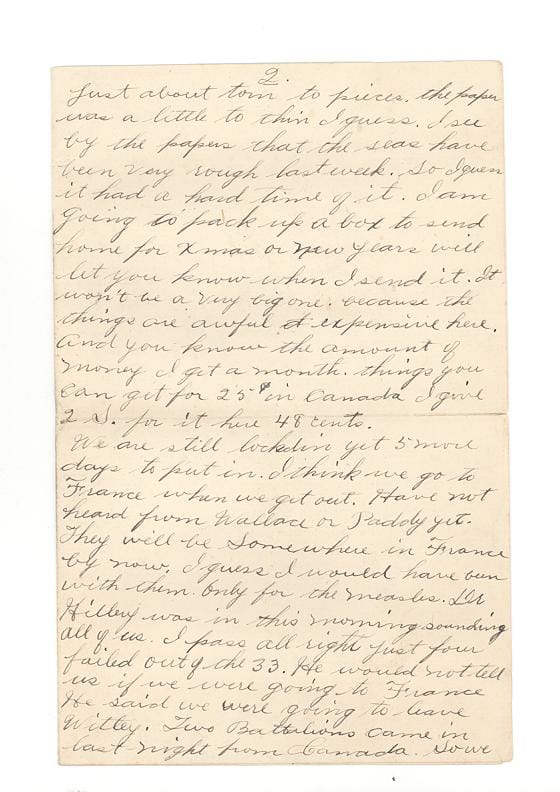 2.
Just about torn to pieces. the paper
was a little to thin I guess. I see
by the papers that the seas have
been very rough last week. So I guess
it had a hard time of it. I am
going to pack up a box to send
home for Xmas or New Years will
let you know when I send it. It
won't be a very big one. because the
things are awful expensive here.
And you know the amount of
money I get a month. things you
can get for 25¢ in Canada I give
2 S. for it here 48 cents.
We are still lockdin yet 5 more
days to put in. I think we go to
France when we get out. Have not
heard from Wallace or Paddy yet.
They will be Somewhere in France
by now. I guess I would have been
with them. only for the measles. Dr
Hillery was in this morning sounding
all of us. I pass all right just four
failed out of the 33. He would not tell
us if we were going to France
He said we were going to leave
Witley. Two Battalions came in
last night from Canada. So we